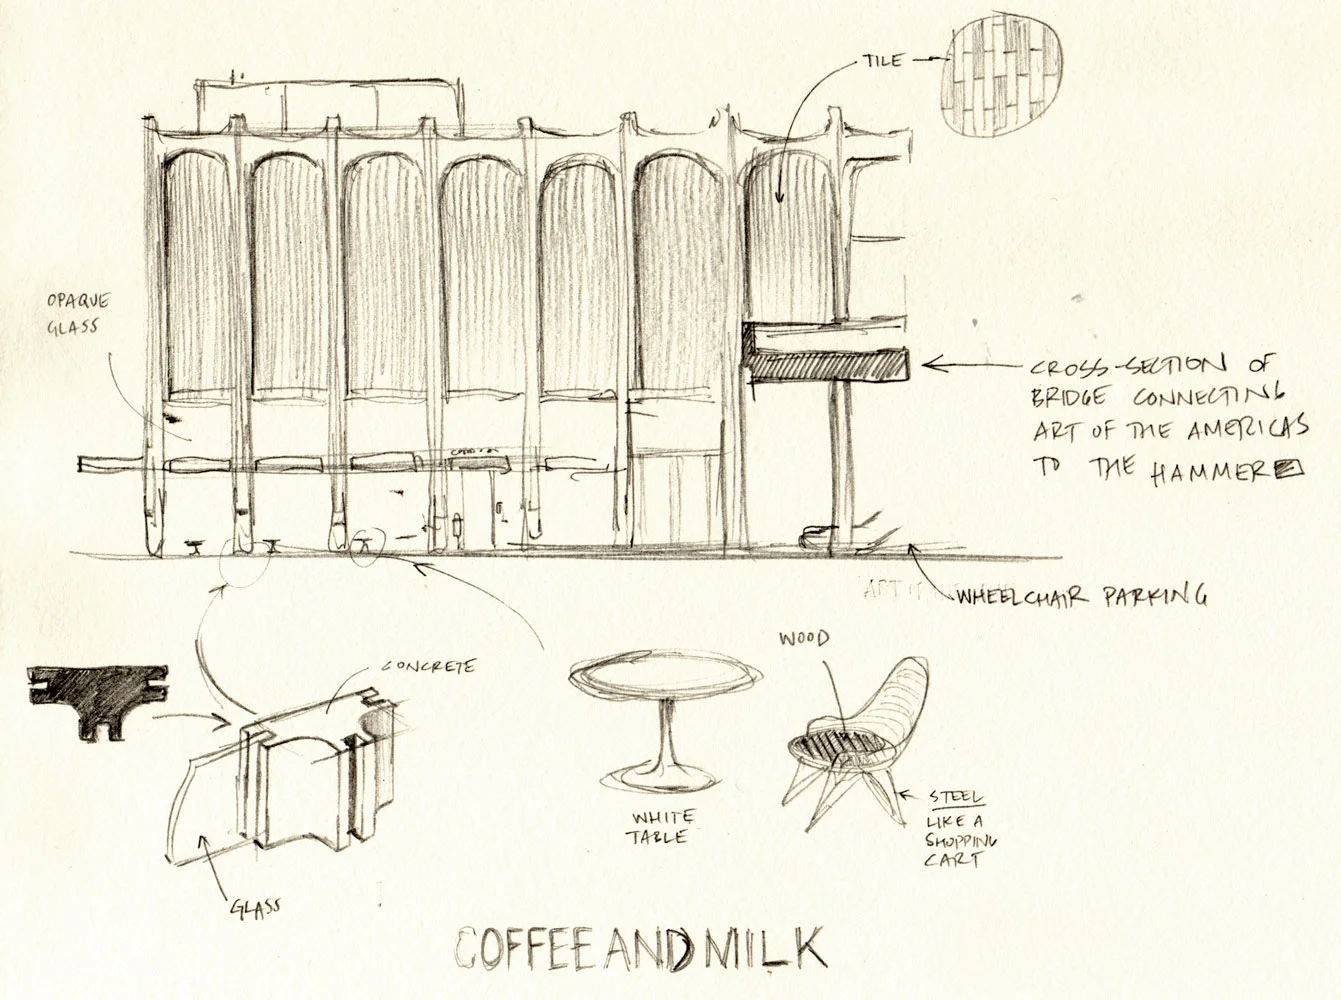 TILE
OPAQUE
GLASS
CROSS-SECTION OF
BRIDGE CONNECTING
ART OF THE AMERICAS
TO THE HAMMER
WHEELCHAIR PARKING
CONCRETE
WOOD
WHITE
TABLE
STEEL
LIKE A
SHOPPING
CART
GLASS
COFFEE AND MILK